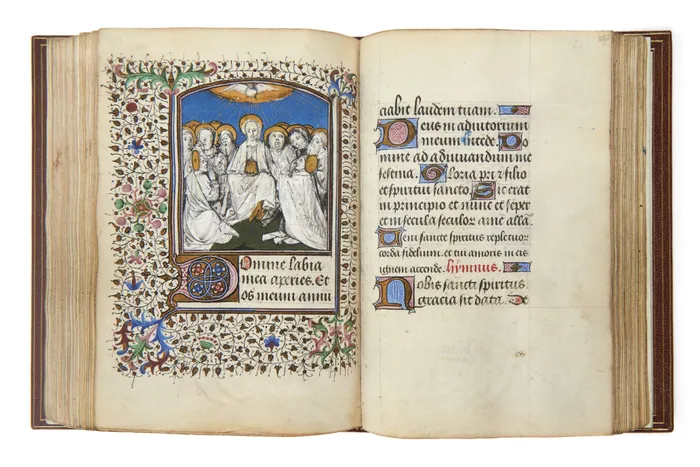 Domine labia
mea aperies. Et
os meum annu
ciabit laudem tuam.
Deus in adiutorium
meum intede Do
mine ad adiuvandum me
festina. Gloria pri z filio
et spiritui sancto Sic erat
in principio et nunc et seper
et in secula seculor amē alla.
Veni sancte spiritus reple tuor
corda fidelium. et tui amoris in eis
ignem accende. hymnus.
Nobis sancti spiritus
gracia sit data. De